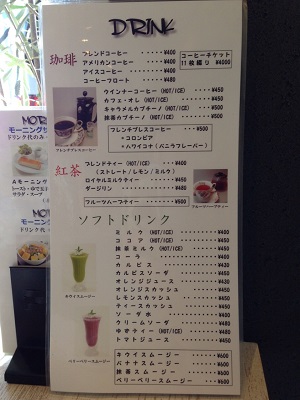 DRINK
珈琲
ブレンドコーヒー ・・・・・¥400
アメリカンコーヒー ・・・・¥400
アイスコーヒー ・・・・・・¥400
コーヒーフロート ・・・・・¥480
コーヒーチケット
11枚綴り ¥4000
ウインナーコーヒー (HOT/ICE) ¥450
カフェ・オレ (HOT/ICE) ¥450
キャラメルカプチーノ (HOT/ICE) ¥500
抹茶カプチーノ (HOT/ICE) ¥500
フレンチプレスコーヒー ¥500
・コロンビア
・ハワイコナ (バニラフレーバー)
フレンチプレスコーヒー
紅茶
ブレンドティー (HOT/ICE) ¥400
(ストレート/レモン/ミルク)
ロイヤルミルクティー ¥450
ダージリン ¥480
フルーツハーブティー ・・・¥500
フルーツハーブティー
ソフトドリンク
ミルク (HOT/ICE) ¥400
ココア (HOT/ICE) ¥450
抹茶ミルク (HOT/ICE) ¥450
コーラ ¥400
カルピス ¥400
カルピスソーダ ¥450
オレンジジュース ¥400
オレンジスカッシュ ¥450
レモンスカッシュ ¥450
ティースカッシュ ¥450
ソーダ水 ¥400
クリームソーダ ¥480
ゆずティー (HOT/ICE) ¥480
トマトジュース ¥450
キウイスムージー
ベリーベリースムージー
キウイスムージー ¥600
バナナスムージー ¥600
抹茶スムージー ¥600
ベリーベリースムージー ¥600
MOR
モーニングサ
ドリンク代のみ
Aモーニング
トースト・ゆで玉子
サラダ・スープ
MO
モーニング
ドリンク代